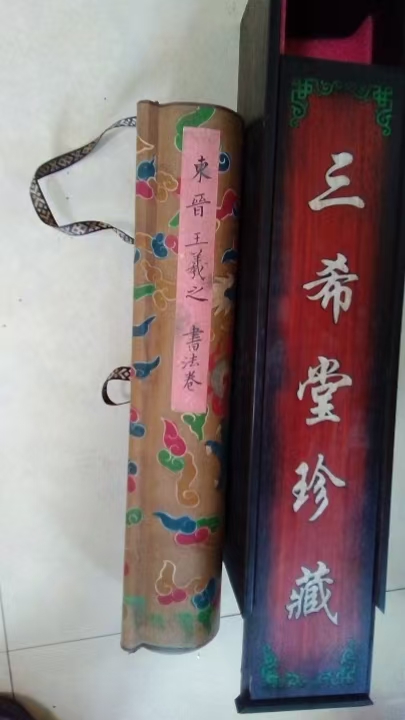 三希堂珍藏
東晉王羲之 書法卷